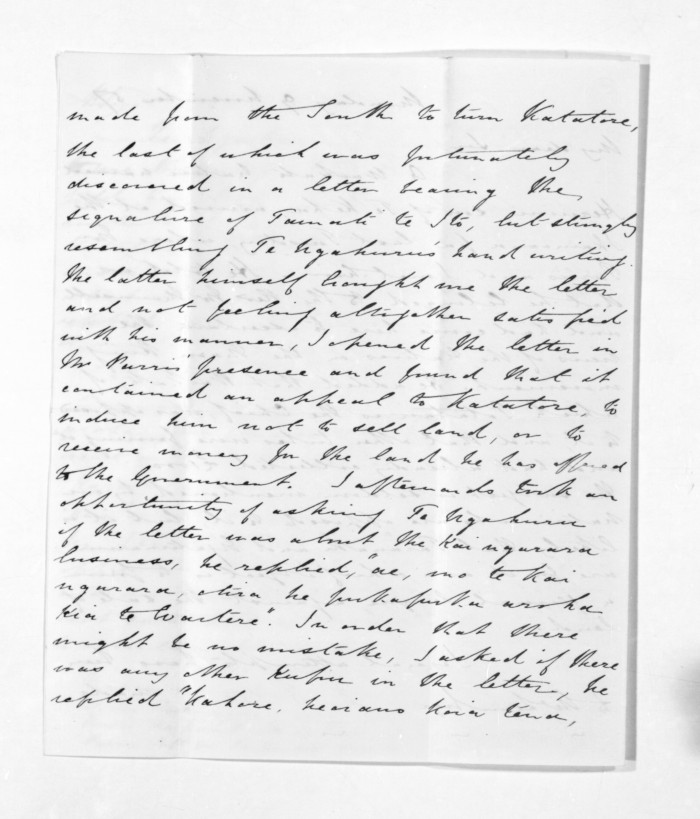 made from the South to turn Katatore,
the last of which was fortunately
discovered in a letter bearing the
signature of Tamati te Ito, but strongly
resembling Te Ngahuru's hand writing.
The latter himself brought me the letter
and not feeling altogether satisfied
with his manner, I opened the letter in
Mr Parris' presence and found that it
contained an appeal to Katatore, to
induce him not to sell land, or to
receive money for the land he has offered
to the Government. I afterwards took an
opportunity of asking Te Ngahuru
if the letter was about the Kai ngarara
business, he replied, "ae, mo te Kai
ngarara, otira he pukapuka aroha
Kia te Waitere". In order that there
might be no mistake, I asked if there
was any other Kupu in the letter, he
replied "Kahore, heoiano Koia tena,